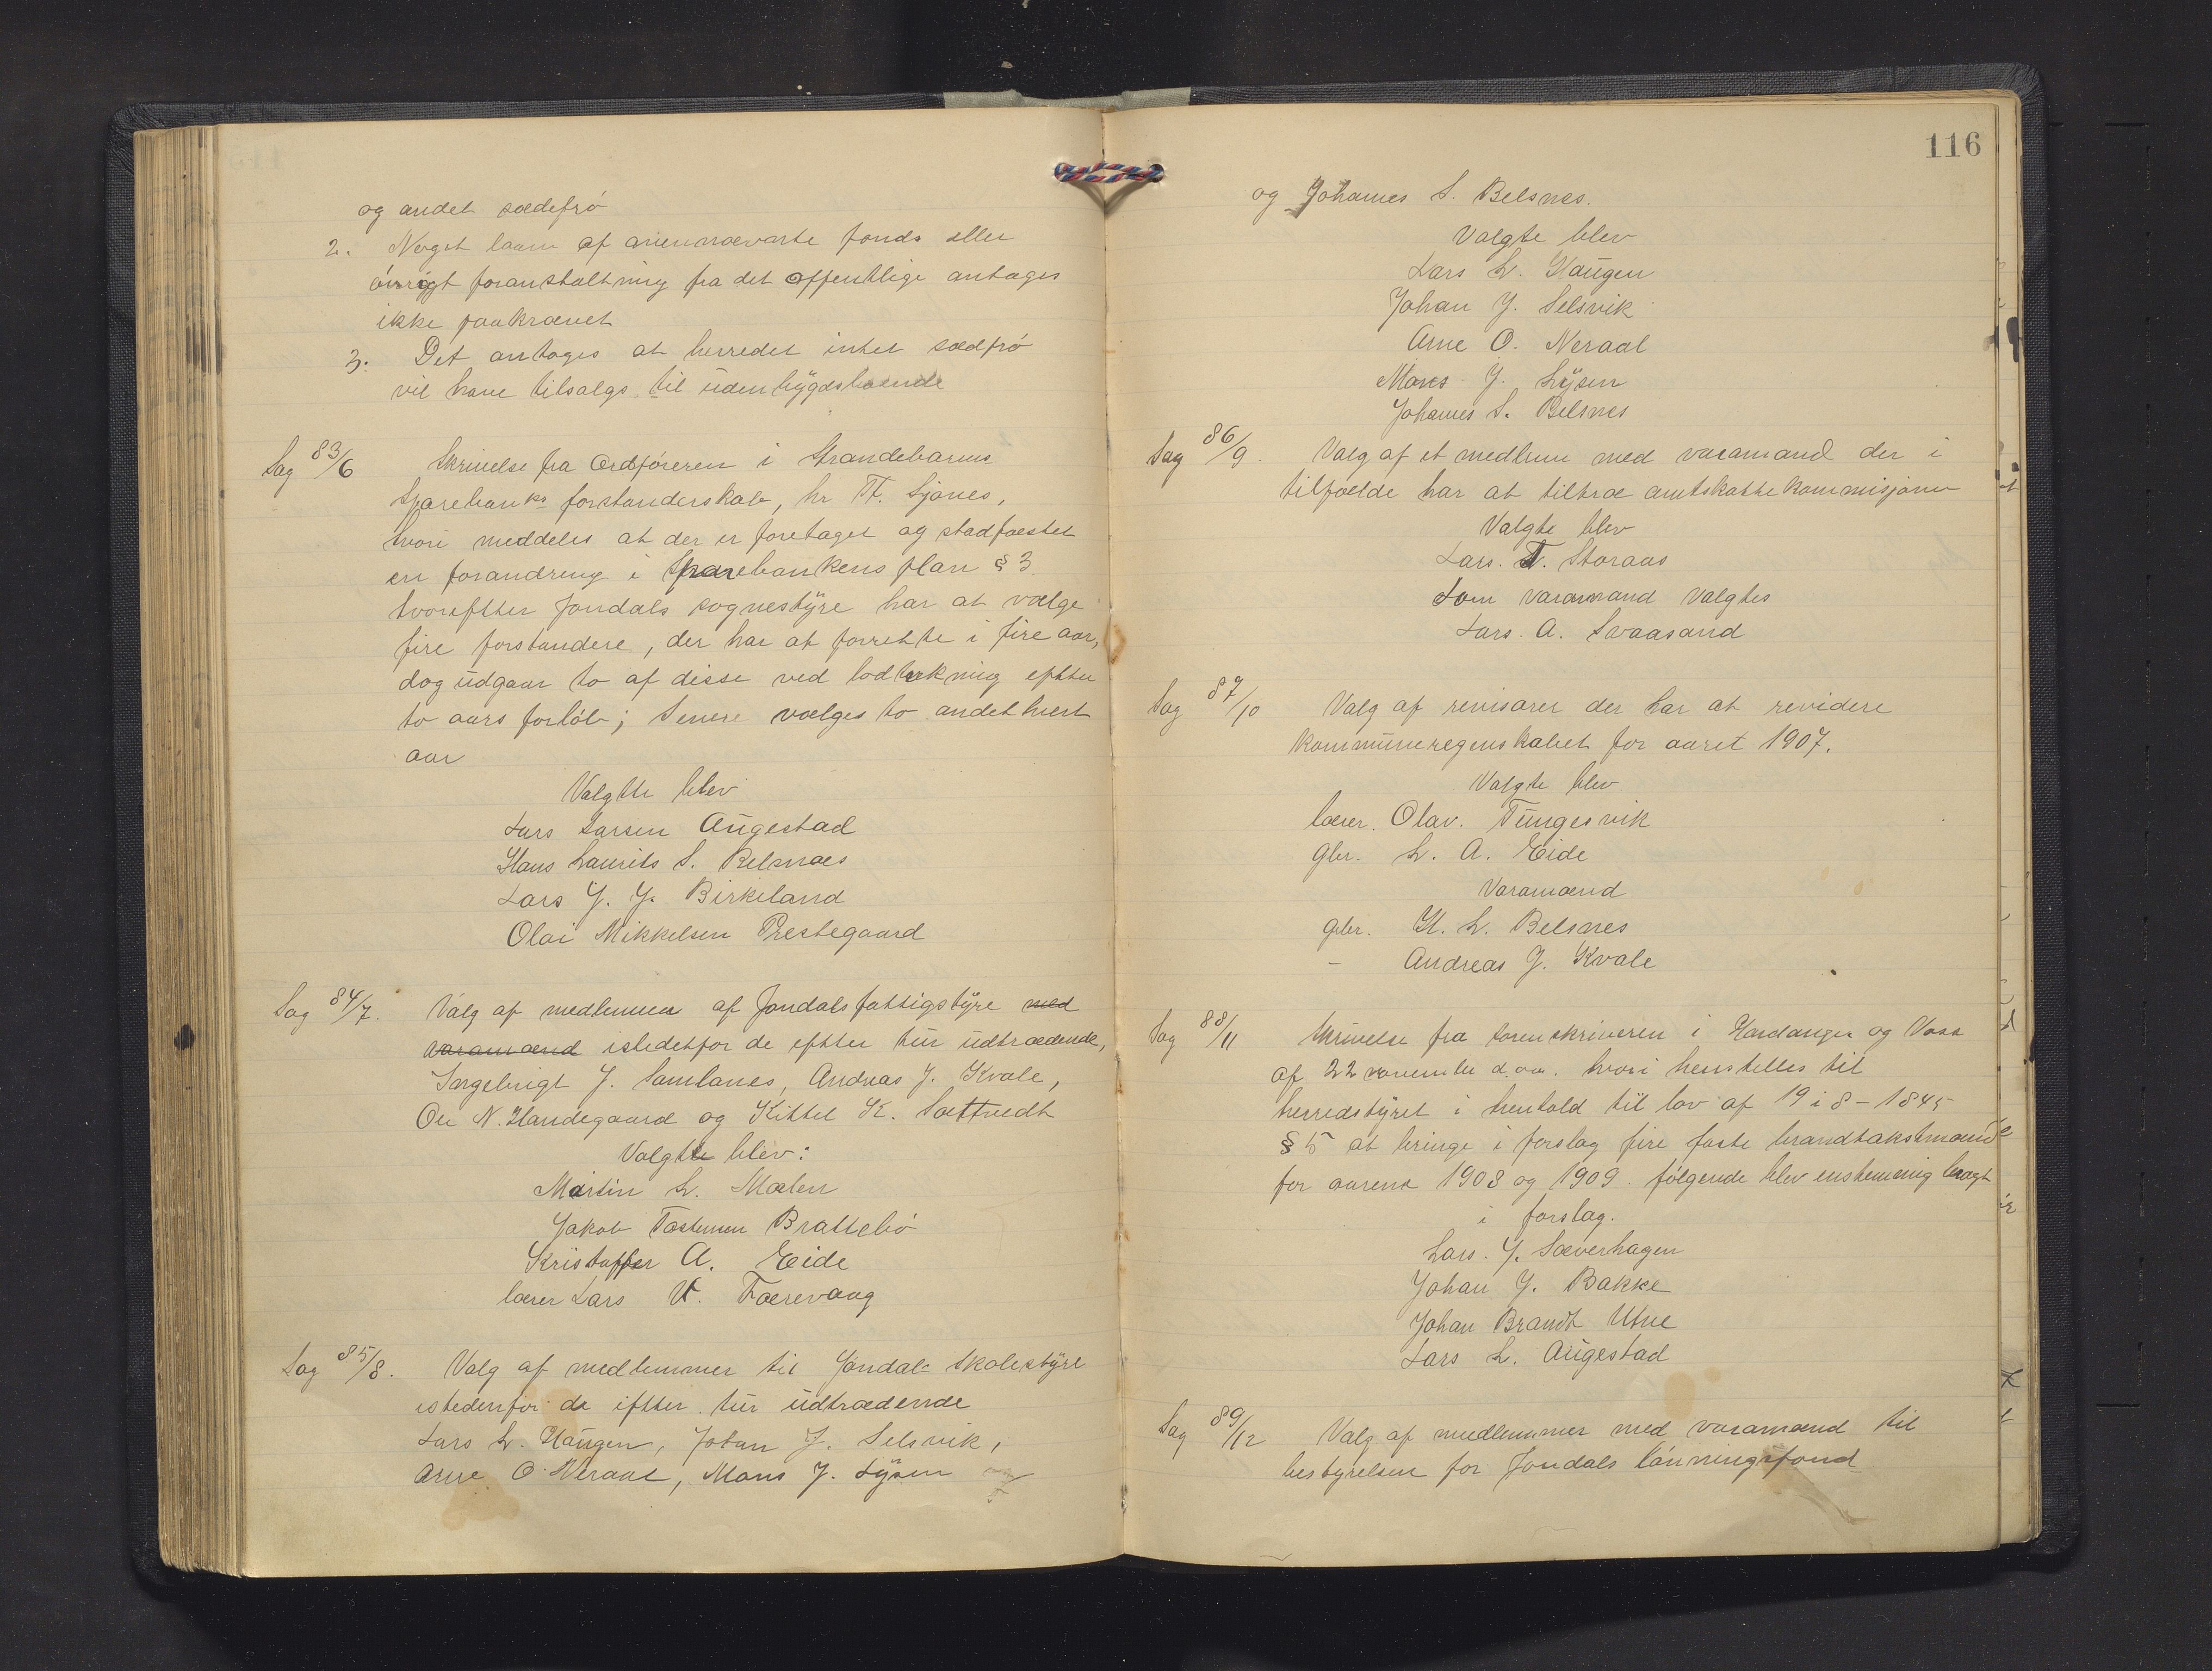 og andet sædefrø
2. Noget laan af anennævnte fonds eller
øvrigt foranstaltning fra det offentlige antages
ikke paakrævet
3. Det antages at herredet intet sædfrø
vil have tilsalgs til udenbygdsboende
Sag 83/6 Skrivelse fra Ordføreren i Strandebarms
Sparebanks forstanderskab, hr T. Sjanes,
hvori meddeles at der er foretaget og stadfæstet
en forandring i Sparebankens plan § 3
hvorefter Jondals sognestyre har at vælge
fire forstandere, der har at forrette i fire aar,
dog udgaar to af disse ved lodtrækning efter
to aars forløb; Senere vælges to andethvert
aar
Valgtte blev
Lars Larsen Augestad
Hans Laurits S. Belsnæs
Lars J. J. Birkeland
Olai Mikkelsen Prestegaard
Sag 84/7. Valg af medlemmer af Jondals fattigstyre med
varamænd istedetfor de efter tur udtrædende,
Ingebrigt J. Samlanes, Andreas J. Kvale,
Ole N. Handegaard og Kittel K. Sættvedt
Valgtte blev:
Martin L. Mælen
Jakob Tostensen Brattebø
Kristoffer A. Eide
lærer Lars V. Færevaag
Sag 85/8. Valg af medlemmer til Jondal Skolestyre
istedenfor de efter tur udtrædende
Lars L. Haugen, Johan J. Selsvik,
Arne O. Neraal, Mons J. Lysen
116
og Johannes S. Belsnes.
Valgte blev
Lars L. Haugen
Johan J. Selsvik
Arne O. Neraal
Mons J. Lysen
Johannes S. Belsnes
Sag 86/9. Valg af et medlem med varamand der i
tilfælde har at tiltræ amtskattekommisjonen
Valgte blev
Lars. T. Storaas
Som varamand valgtes
Lars. A. Svaasand
Sag 87/10 Valg af revisorer der har at revidere
kommuneregenskabet for aaret 1907.
Valgte blev
lærer. Olav. Tungesvik
gbr. L. A. Eide
Varamænd
gbr. H. L. Belsnes
- Andreas J. Kvale
Sag 88/11 Skrivelse fra sorenskriveren i Hardanger og Voss
af 22 november d.aa. hvori henstilles til
herredstyret i henhold til lov af 19 i 8 - 1845
§ 5 at bringe i forslag fire faste brandtakstmænd
for aarene 1908 og 1909. følgende blev enstemmig bragt
i forslag.
Lars. J. Sæverhagen
Johan J. Bakke
Johan Brandt Utne
Lars L. Augestad
Sag 89/12 Valg af medlemmer med varamænd til
bestyrelsen for Jondals lånningsfond